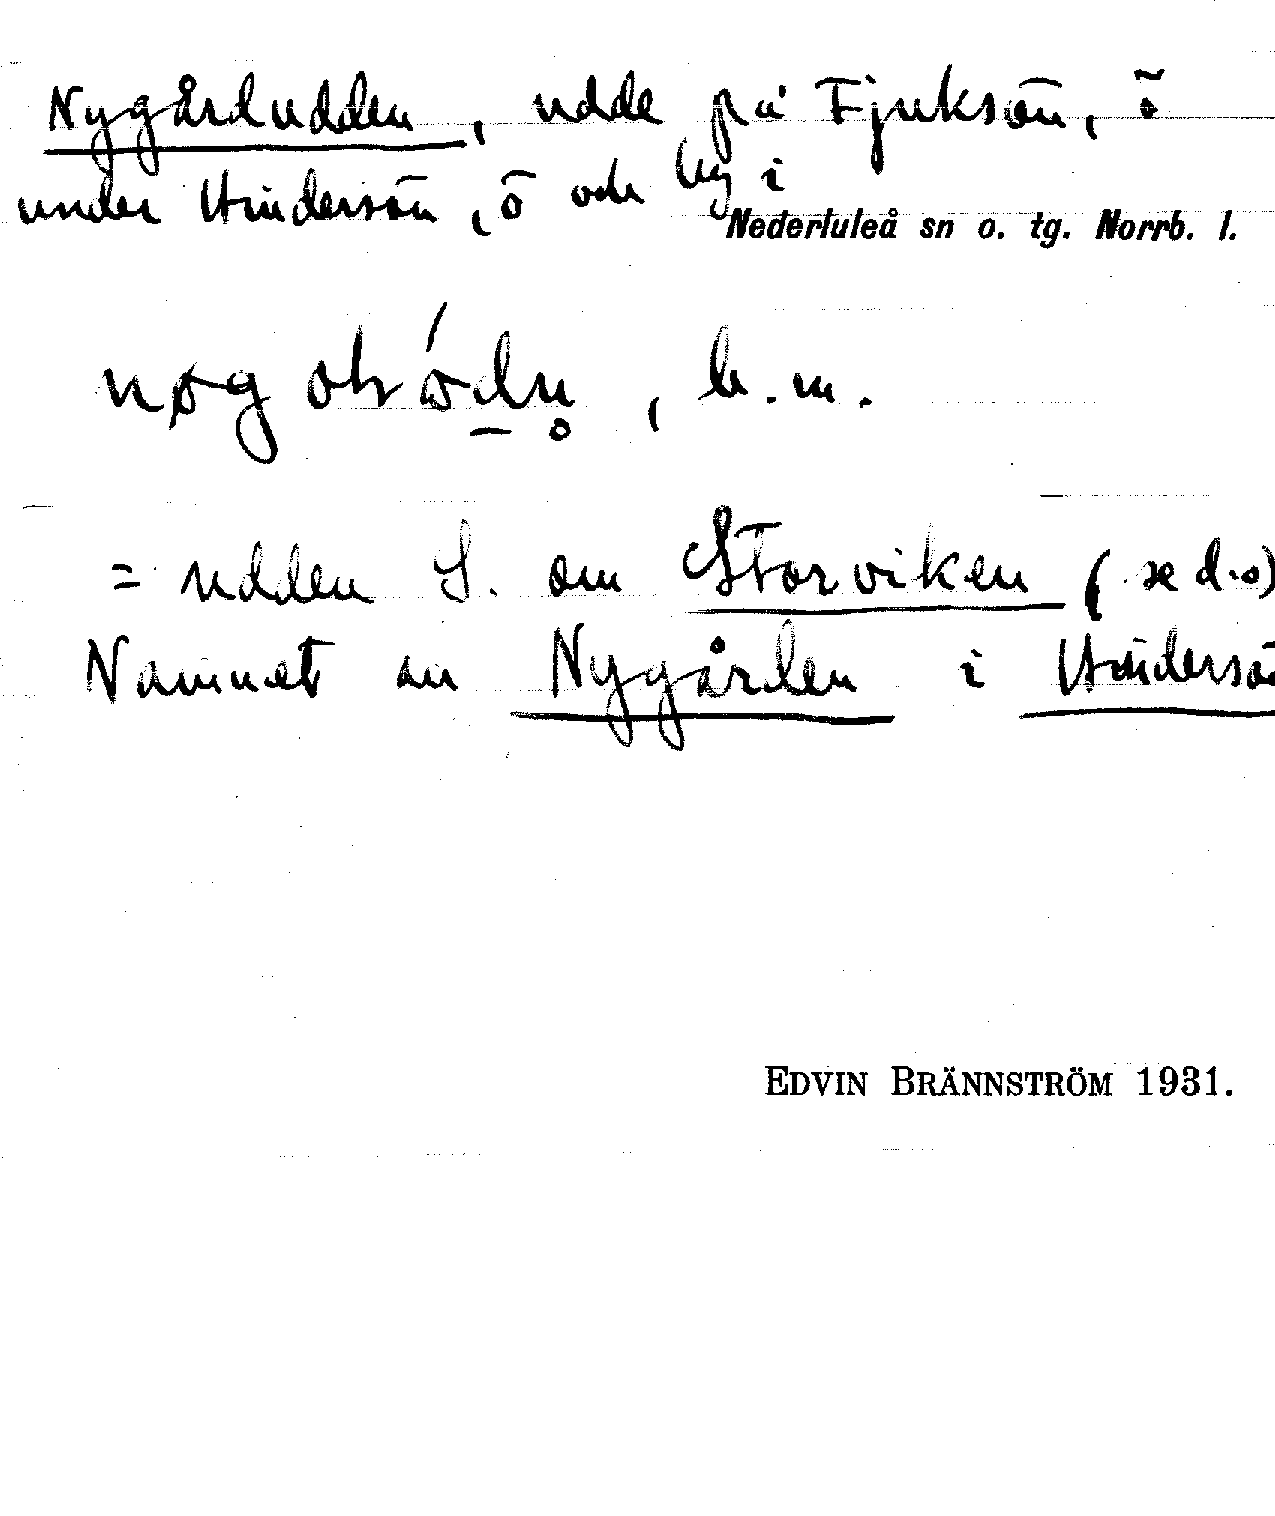 Nygårdudden, udde på Fjuksön, ö
under Hindersön, ö och by i
Nederluleå sn o. tg. Norrb. l.
, b. m.
= udden S. om Storviken (se d.o)
Namnet av Nygården i Hindersö
EDVIN BRÄNNSTRÖM 1931.